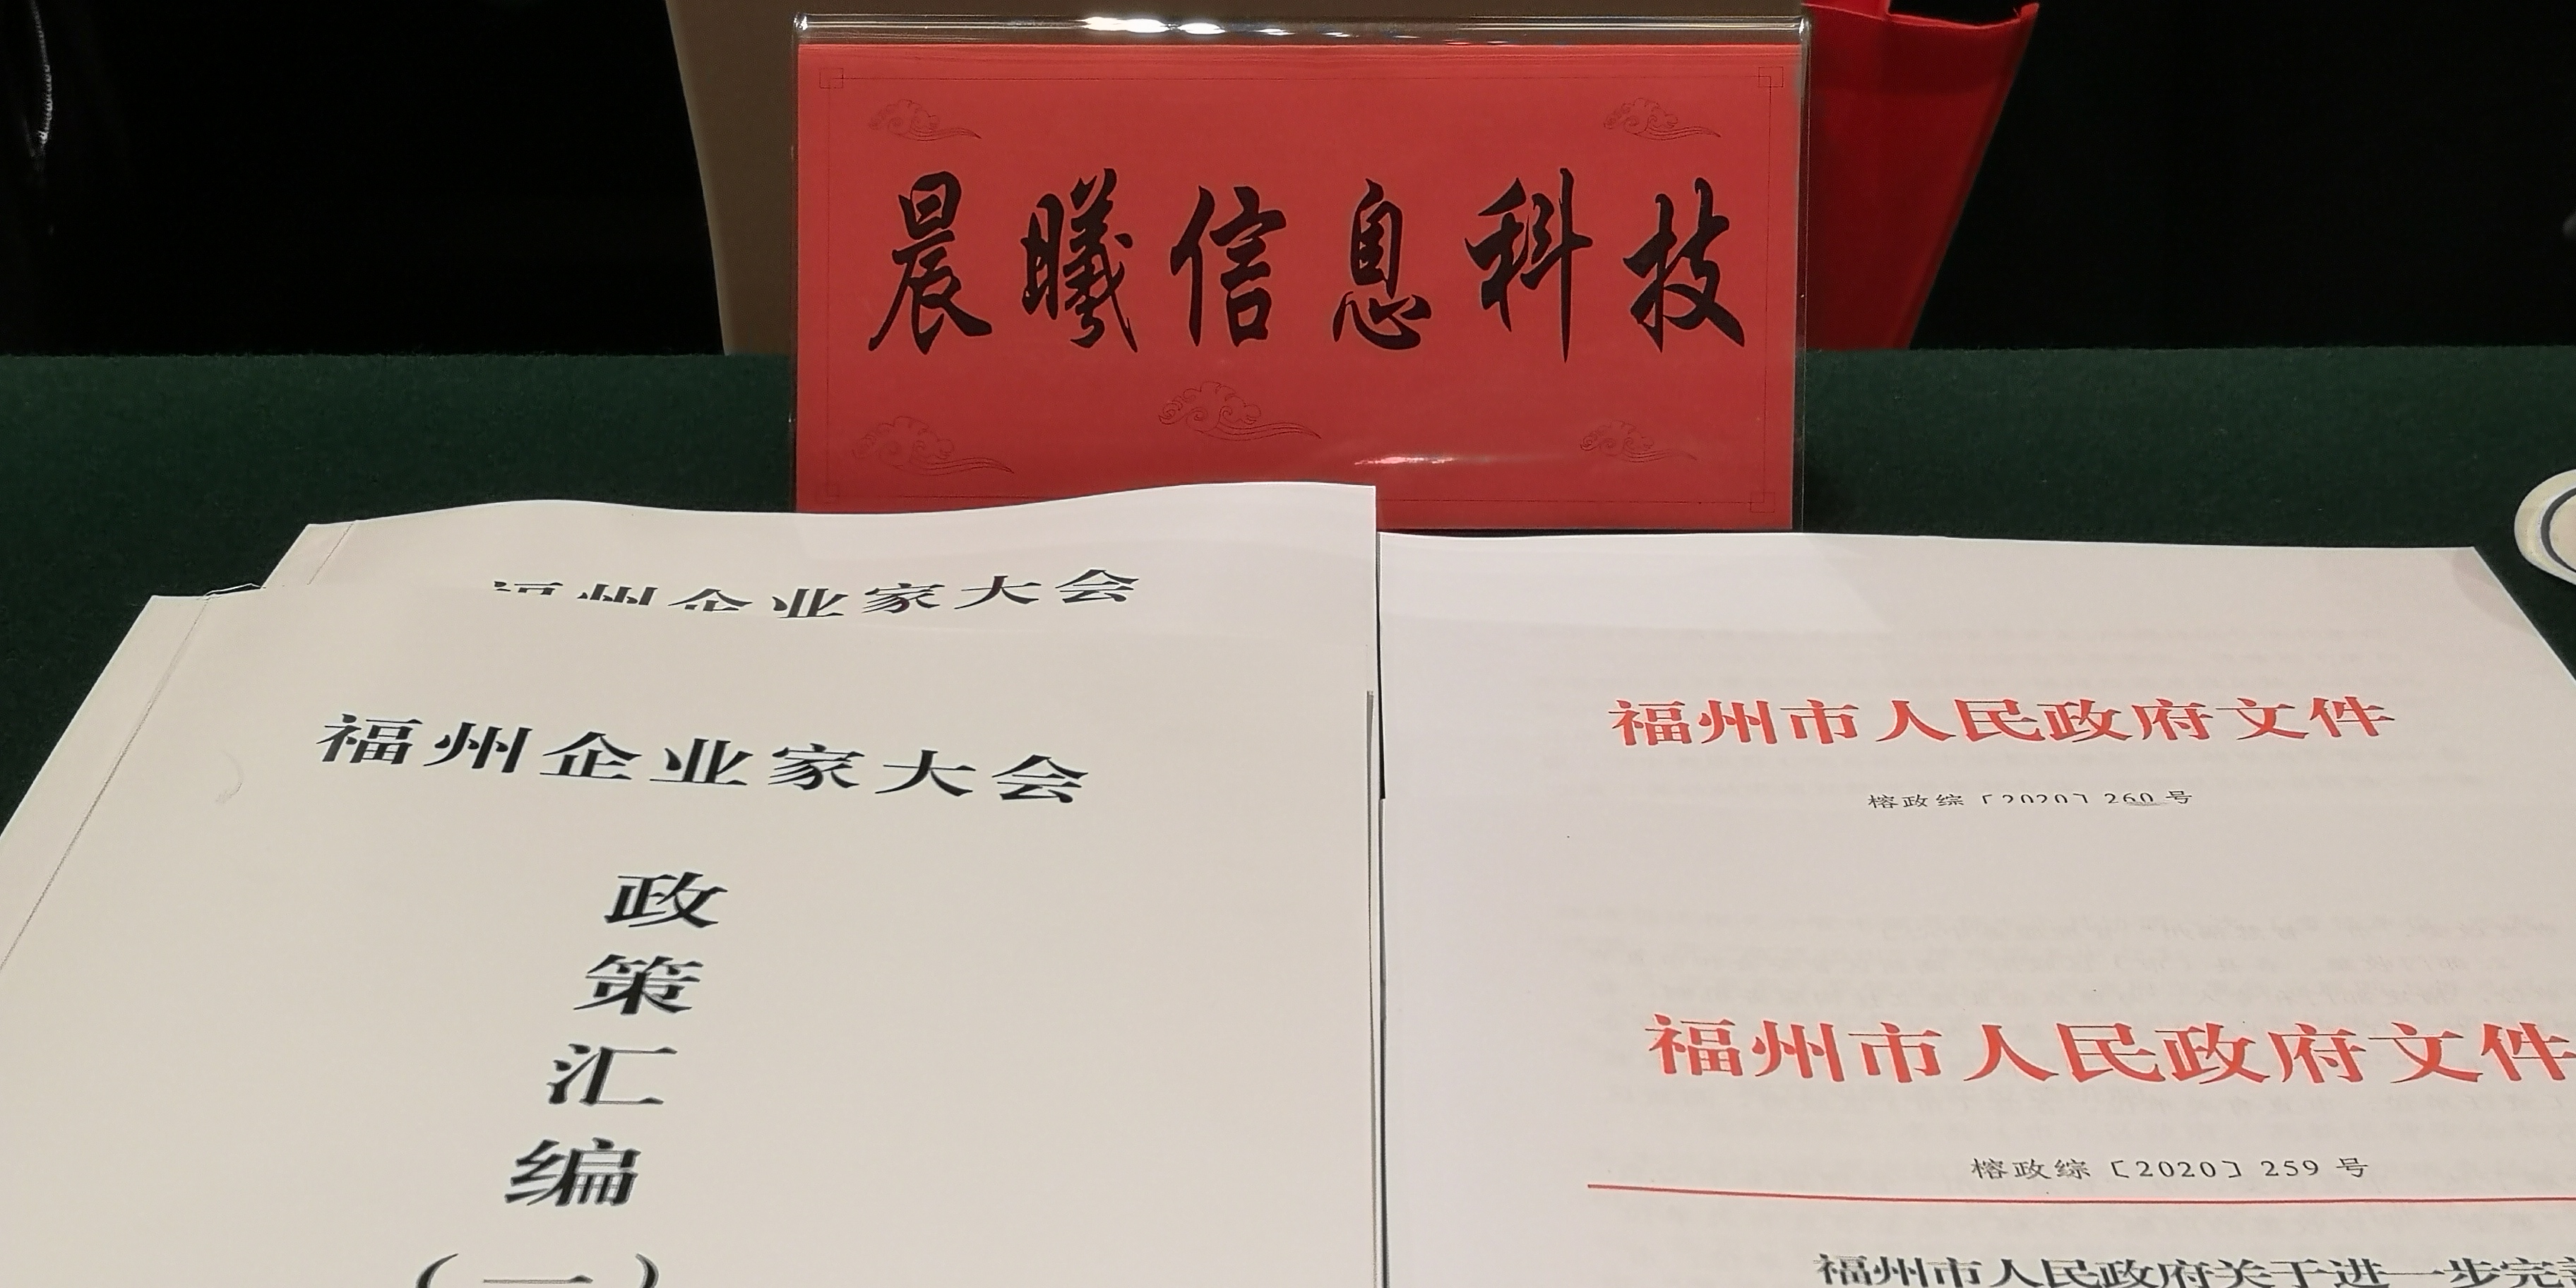 晨曦信息科技
福州企业家大会
福州企业家大会
政
策
汇
编
(一)
福州市人民政府文件
榕政综〔2020〕260号
福州市人民政府文件
榕政综〔2020〕259号
福州市人民政府关于进一步完